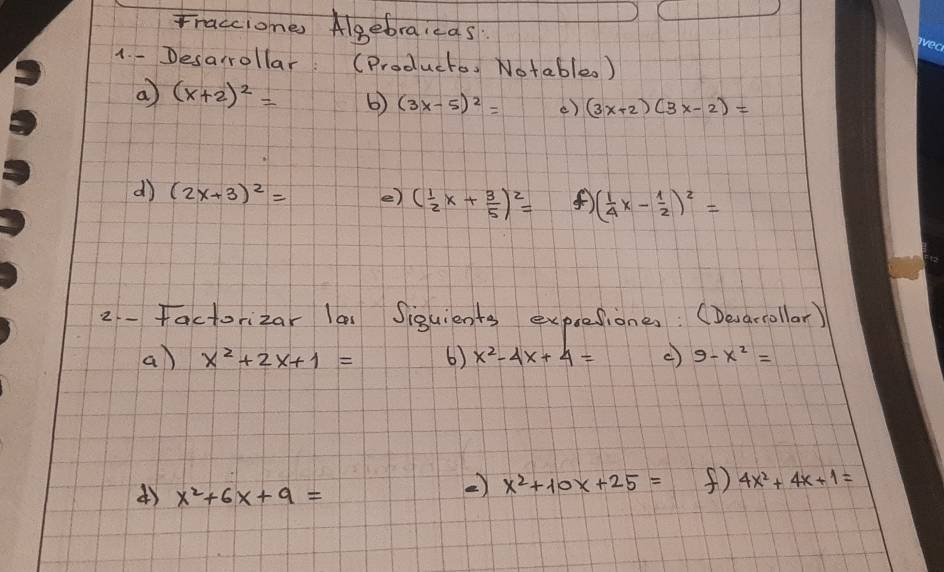 Fracciones Algebraicas:
1.- Desarrollar: (Productos Notables)
a) (x+2)² = b) (3x-5)² = c) (3x+2)(3x-2) =
d) (2x+3)² = e) (1/2 x + 3/5)² = f) (1/4 x - 1/2)² =
2.- Factorizar las Siguientes expresiones: (Desarrollar)
a) x²+2x+1 = b) x²-4x+4 = c) 9-x² =
d) x²+6x+9 = e) x²+10x+25 = f) 4x²+4x+1=